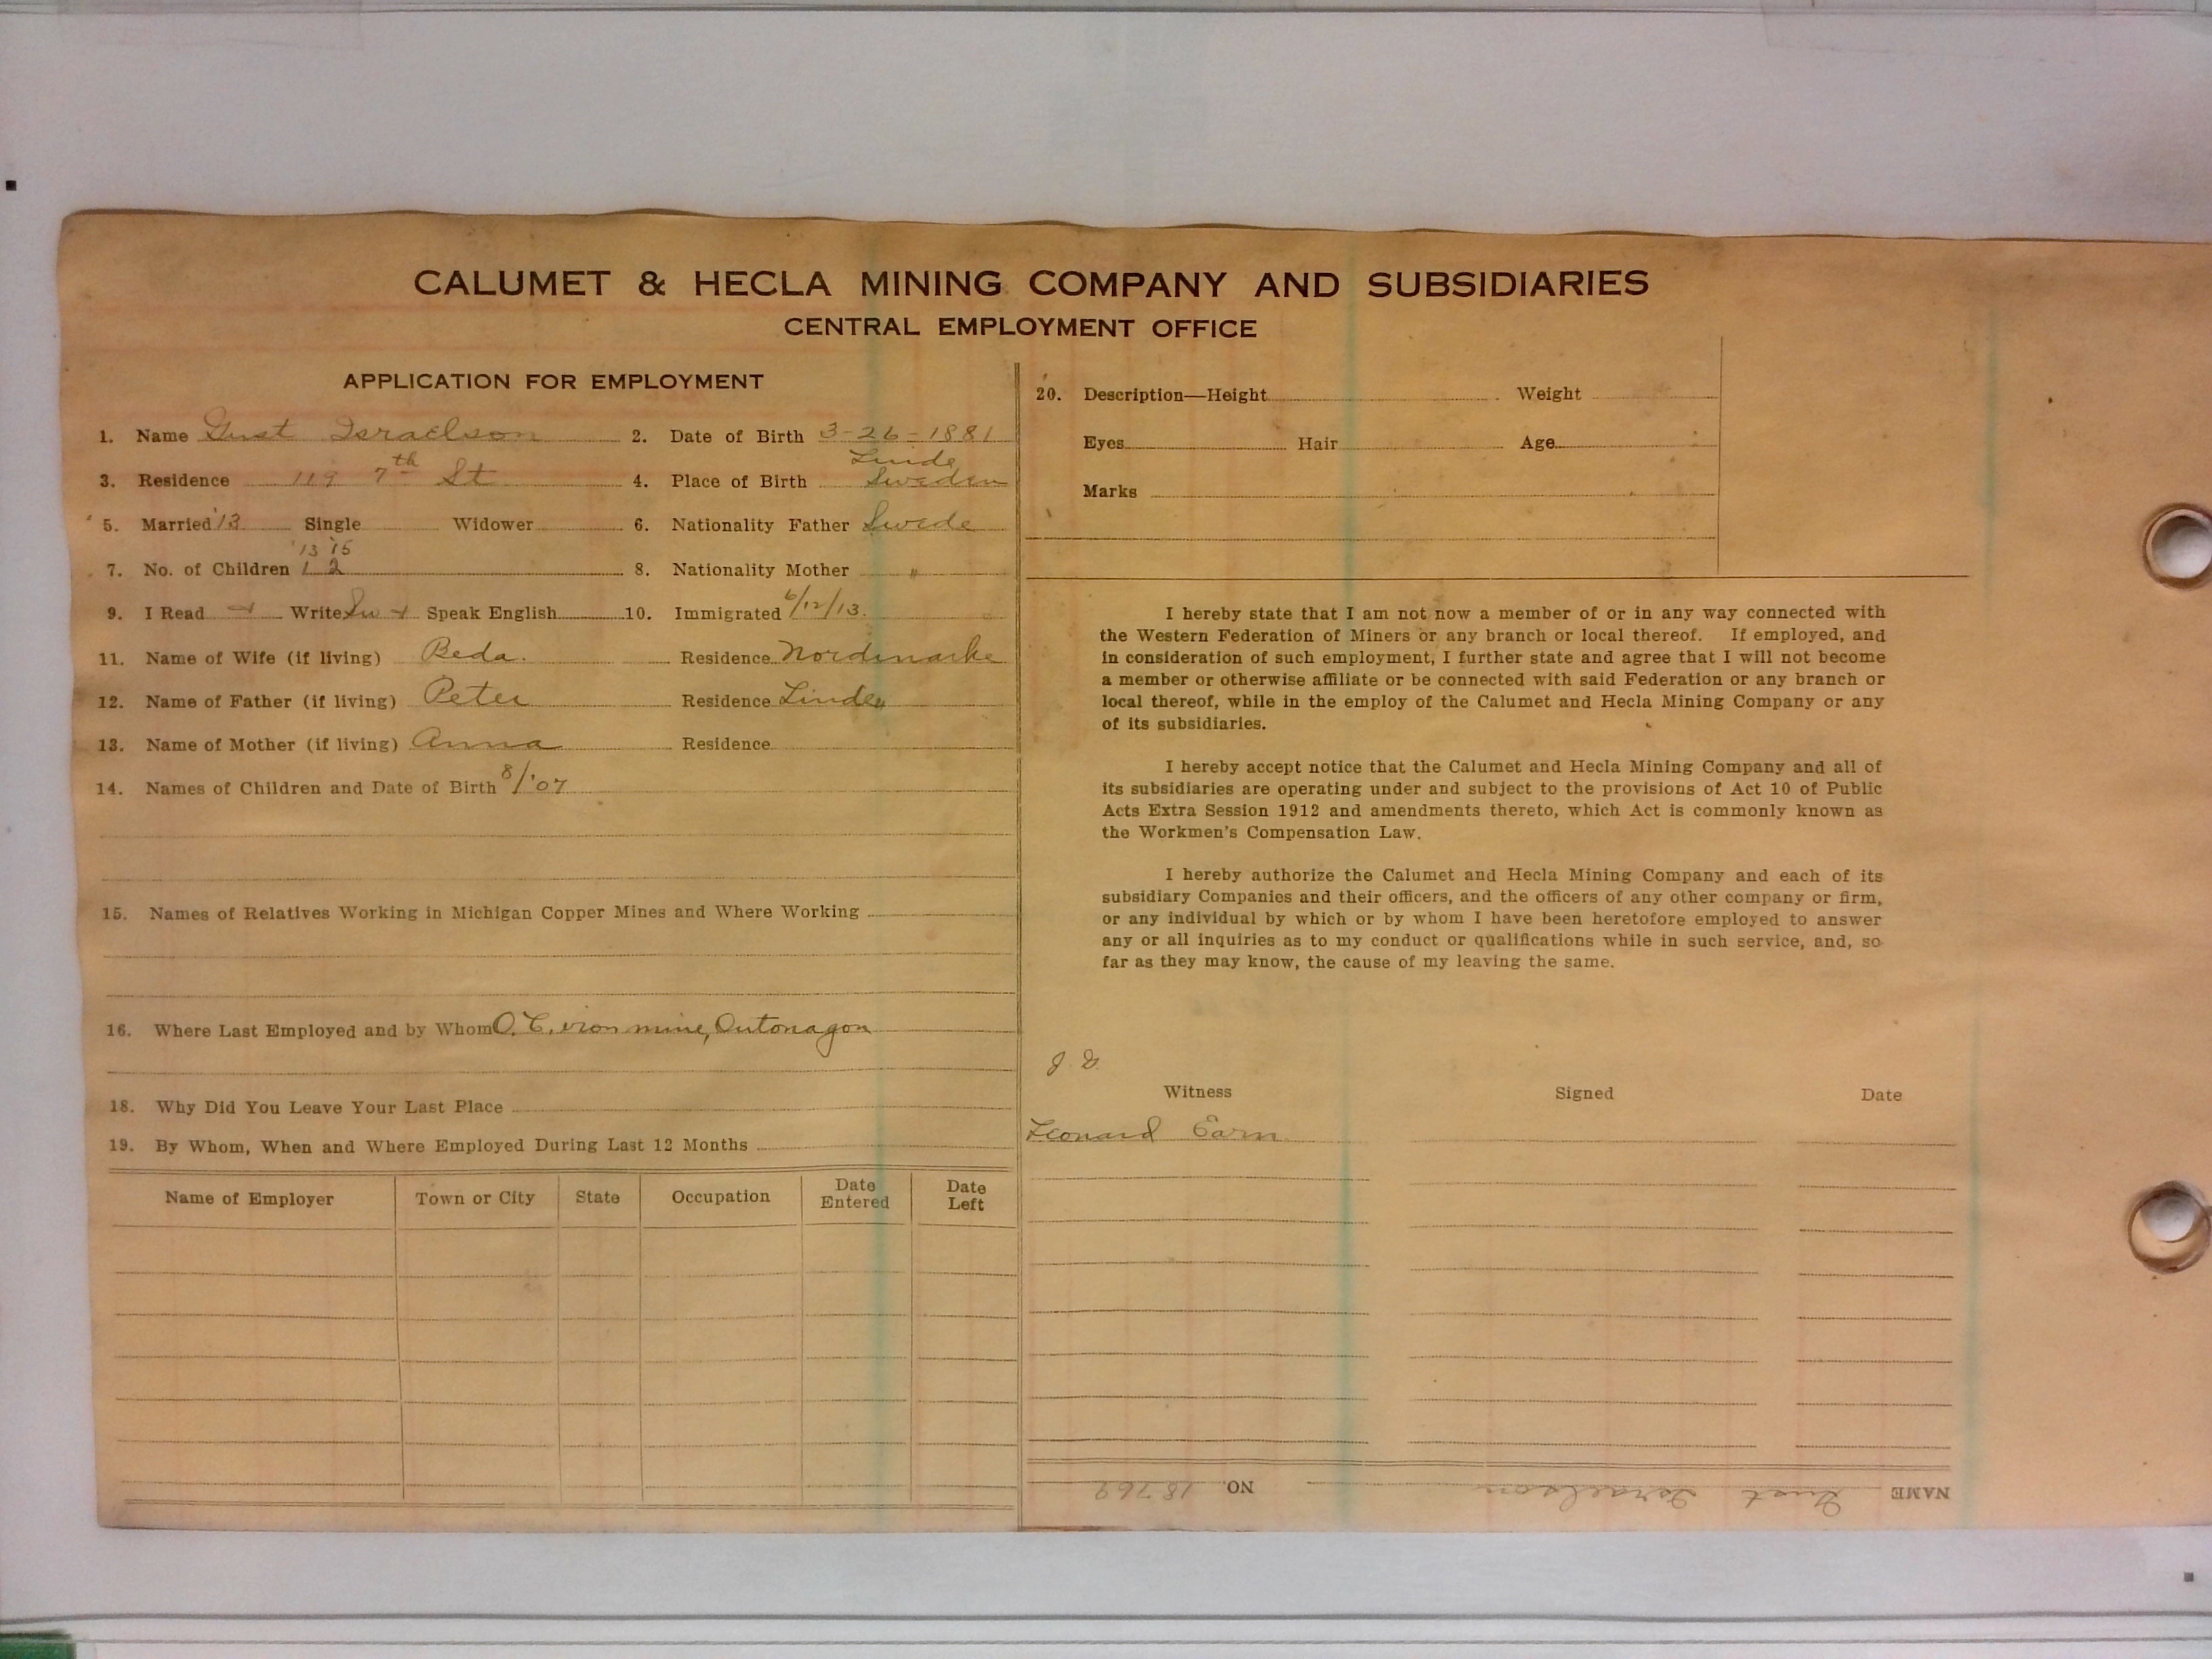 CALUMET & HECLA MINING COMPANY AND SUBSIDIARIES
CENTRAL EMPLOYMENT OFFICE
APPLICATION FOR EMPLOYMENT
1. Name Gust Israelson 2. Date of Birth 3-26-1881
3. Residence 119 7th St 4. Place of Birth Linde Sweden
5. Married '13 Single Widower 6. Nationality Father Swede
'13 '15
7. No. of Children 1 2 8. Nationality Mother "
9. I Read Write Sw Speak English 10. Immigrated 6/12/13.
11. Name of Wife (if living) Beda. Residence Nordmarke
12. Name of Father (if living) Peter Residence Linde
13. Name of Mother (if living) Anna Residence "
14. Names of Children and Date of Birth 8/'07
15. Names of Relatives Working in Michigan Copper Mines and Where Working
16. Where Last Employed and by Whom O. C. iron mine, Ontonagon
18. Why Did You Leave Your Last Place
19. By Whom, When and Where Employed During Last 12 Months
Name of Employer Town or City State Occupation Date Entered Date Left
20. Description—Height Weight
Eyes Hair Age
Marks
I hereby state that I am not now a member of or in any way connected with
the Western Federation of Miners or any branch or local thereof. If employed, and
in consideration of such employment, I further state and agree that I will not become
a member or otherwise affiliate or be connected with said Federation or any branch or
local thereof, while in the employ of the Calumet and Hecla Mining Company or any
of its subsidiaries.
I hereby accept notice that the Calumet and Hecla Mining Company and all of
its subsidiaries are operating under and subject to the provisions of Act 10 of Public
Acts Extra Session 1912 and amendments thereto, which Act is commonly known as
the Workmen's Compensation Law.
I hereby authorize the Calumet and Hecla Mining Company and each of its
subsidiary Companies and their officers, and the officers of any other company or firm,
or any individual by which or by whom I have been heretofore employed to answer
any or all inquiries as to my conduct or qualifications while in such service, and, so
far as they may know, the cause of my leaving the same.
Witness Signed Date
Leonard Earn
NAME Gust Israelson NO. 18769